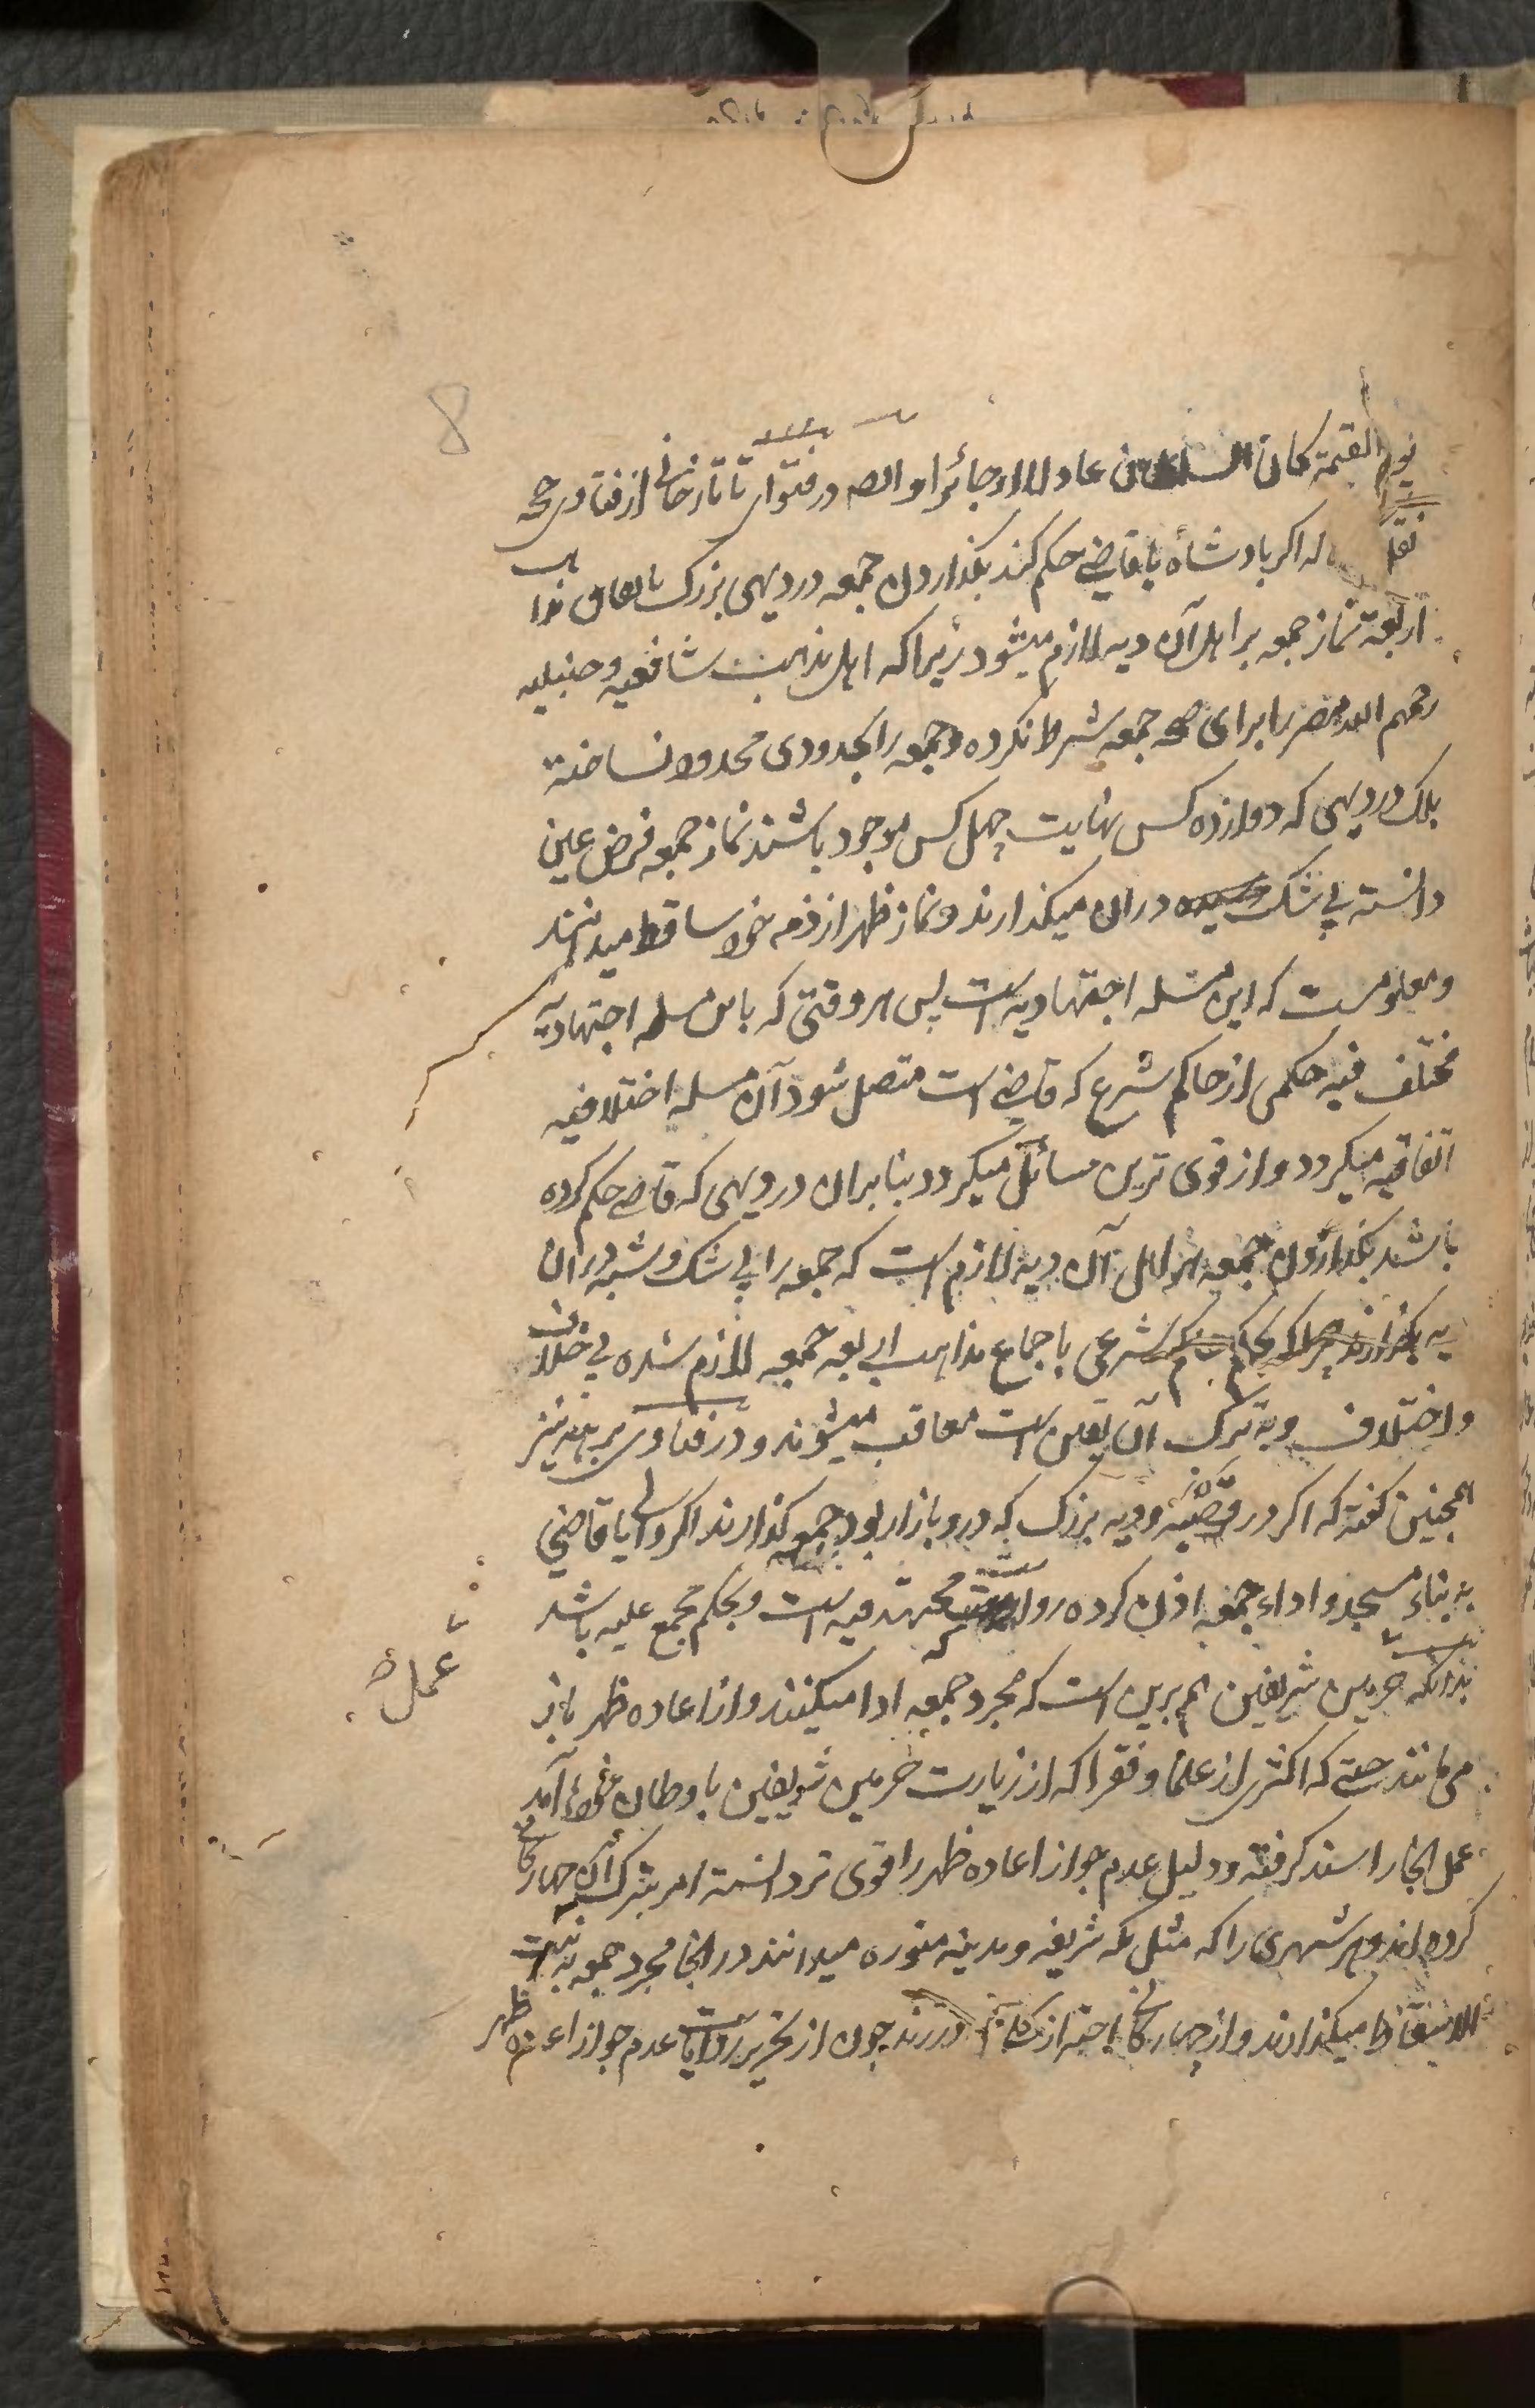 8
یوم القیمة کان السلطان عادلا او جائرا و الصه در فتوای تاتارخانی از فتاوی حجه
نقل اگر پادشاه یا قاضی حکم کند بگذاردن جمعه در دیهی بزرگ باتفاق مذاهب
اربعة نماز جمعه بر اهل آن دیه لازم میشود زیرا که اهل مذهب شافعیه و حنبلیه
رحمهم الله مصر را برای صحه جمعه شرط نکرده و جمعه را بحدودی محدود نساخته
بلک در دیهی که دوازده کس نهایت چهل کس موجود باشند نماز جمعه فرض عین
دانسته بی شک دران میگذارند و نماز ظهر از ذمه خود ساقط میدانند
و معلومست که این مسئله اجتهادیه است پس هر وقتی که باین مسله اجتهادیه
مختلف فیه حکمی از حاکم شرع که قاضی است متصل شود آن مسله اختلافیه
اتفاقیه میگردد و از قوی ترین مسائل میگردد بنابران در دیهی که قاضی حکم کرده
باشد بگذاردن جمعه بر اهل آن دیه لازم است که جمعه را بی شک و شبه دران
دیه بگذارند چرا که بحکم حاکم شرعی باجماع مذاهب اربعه جمعه لازم شده بی خلاف
و اختلاف و به ترک آن یقین است معاقب میشوند و در فتاوی برهنه نیز
همچنین گفته که اگر در قصبه و دیه بزرگ که درو بازار بود جمعه گذارند اگر والی یا قاضی
به بناء مسجد و اداء جمعه اذن کرده روا مجتهد فیه است و بحکم مجمع علیه باشد
بدانکه عمل حرمین شریفین هم برین است که مجرد جمعه ادا میکنند و از اعاده ظهر باز
می مانند حتی که اکثری از علما و فقرا که از زیارت حرمین شریفین باوطان خود آمد
عمل انجا را سند گرفته و دلیل عدم جواز اعاده ظهر را قوی تر دانسته امر بترک آن چهارگانی
کرده اند و هر شهری را که مثل مکه شریفه و مدینه منوره میدانند در انجا مجرد جمعه به نیت
الاسقاط میگذارند و از چهارگانی احتراز دارند چون از تحریر روایات عدم جواز اعاده ظهر